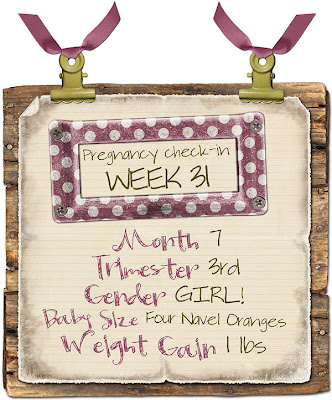 Pregnancy check-in
WEEK 31
Month 7
Trimester 3rd
Gender GIRL!
Baby Size Four Navel Oranges
Weight Gain 1 lbs